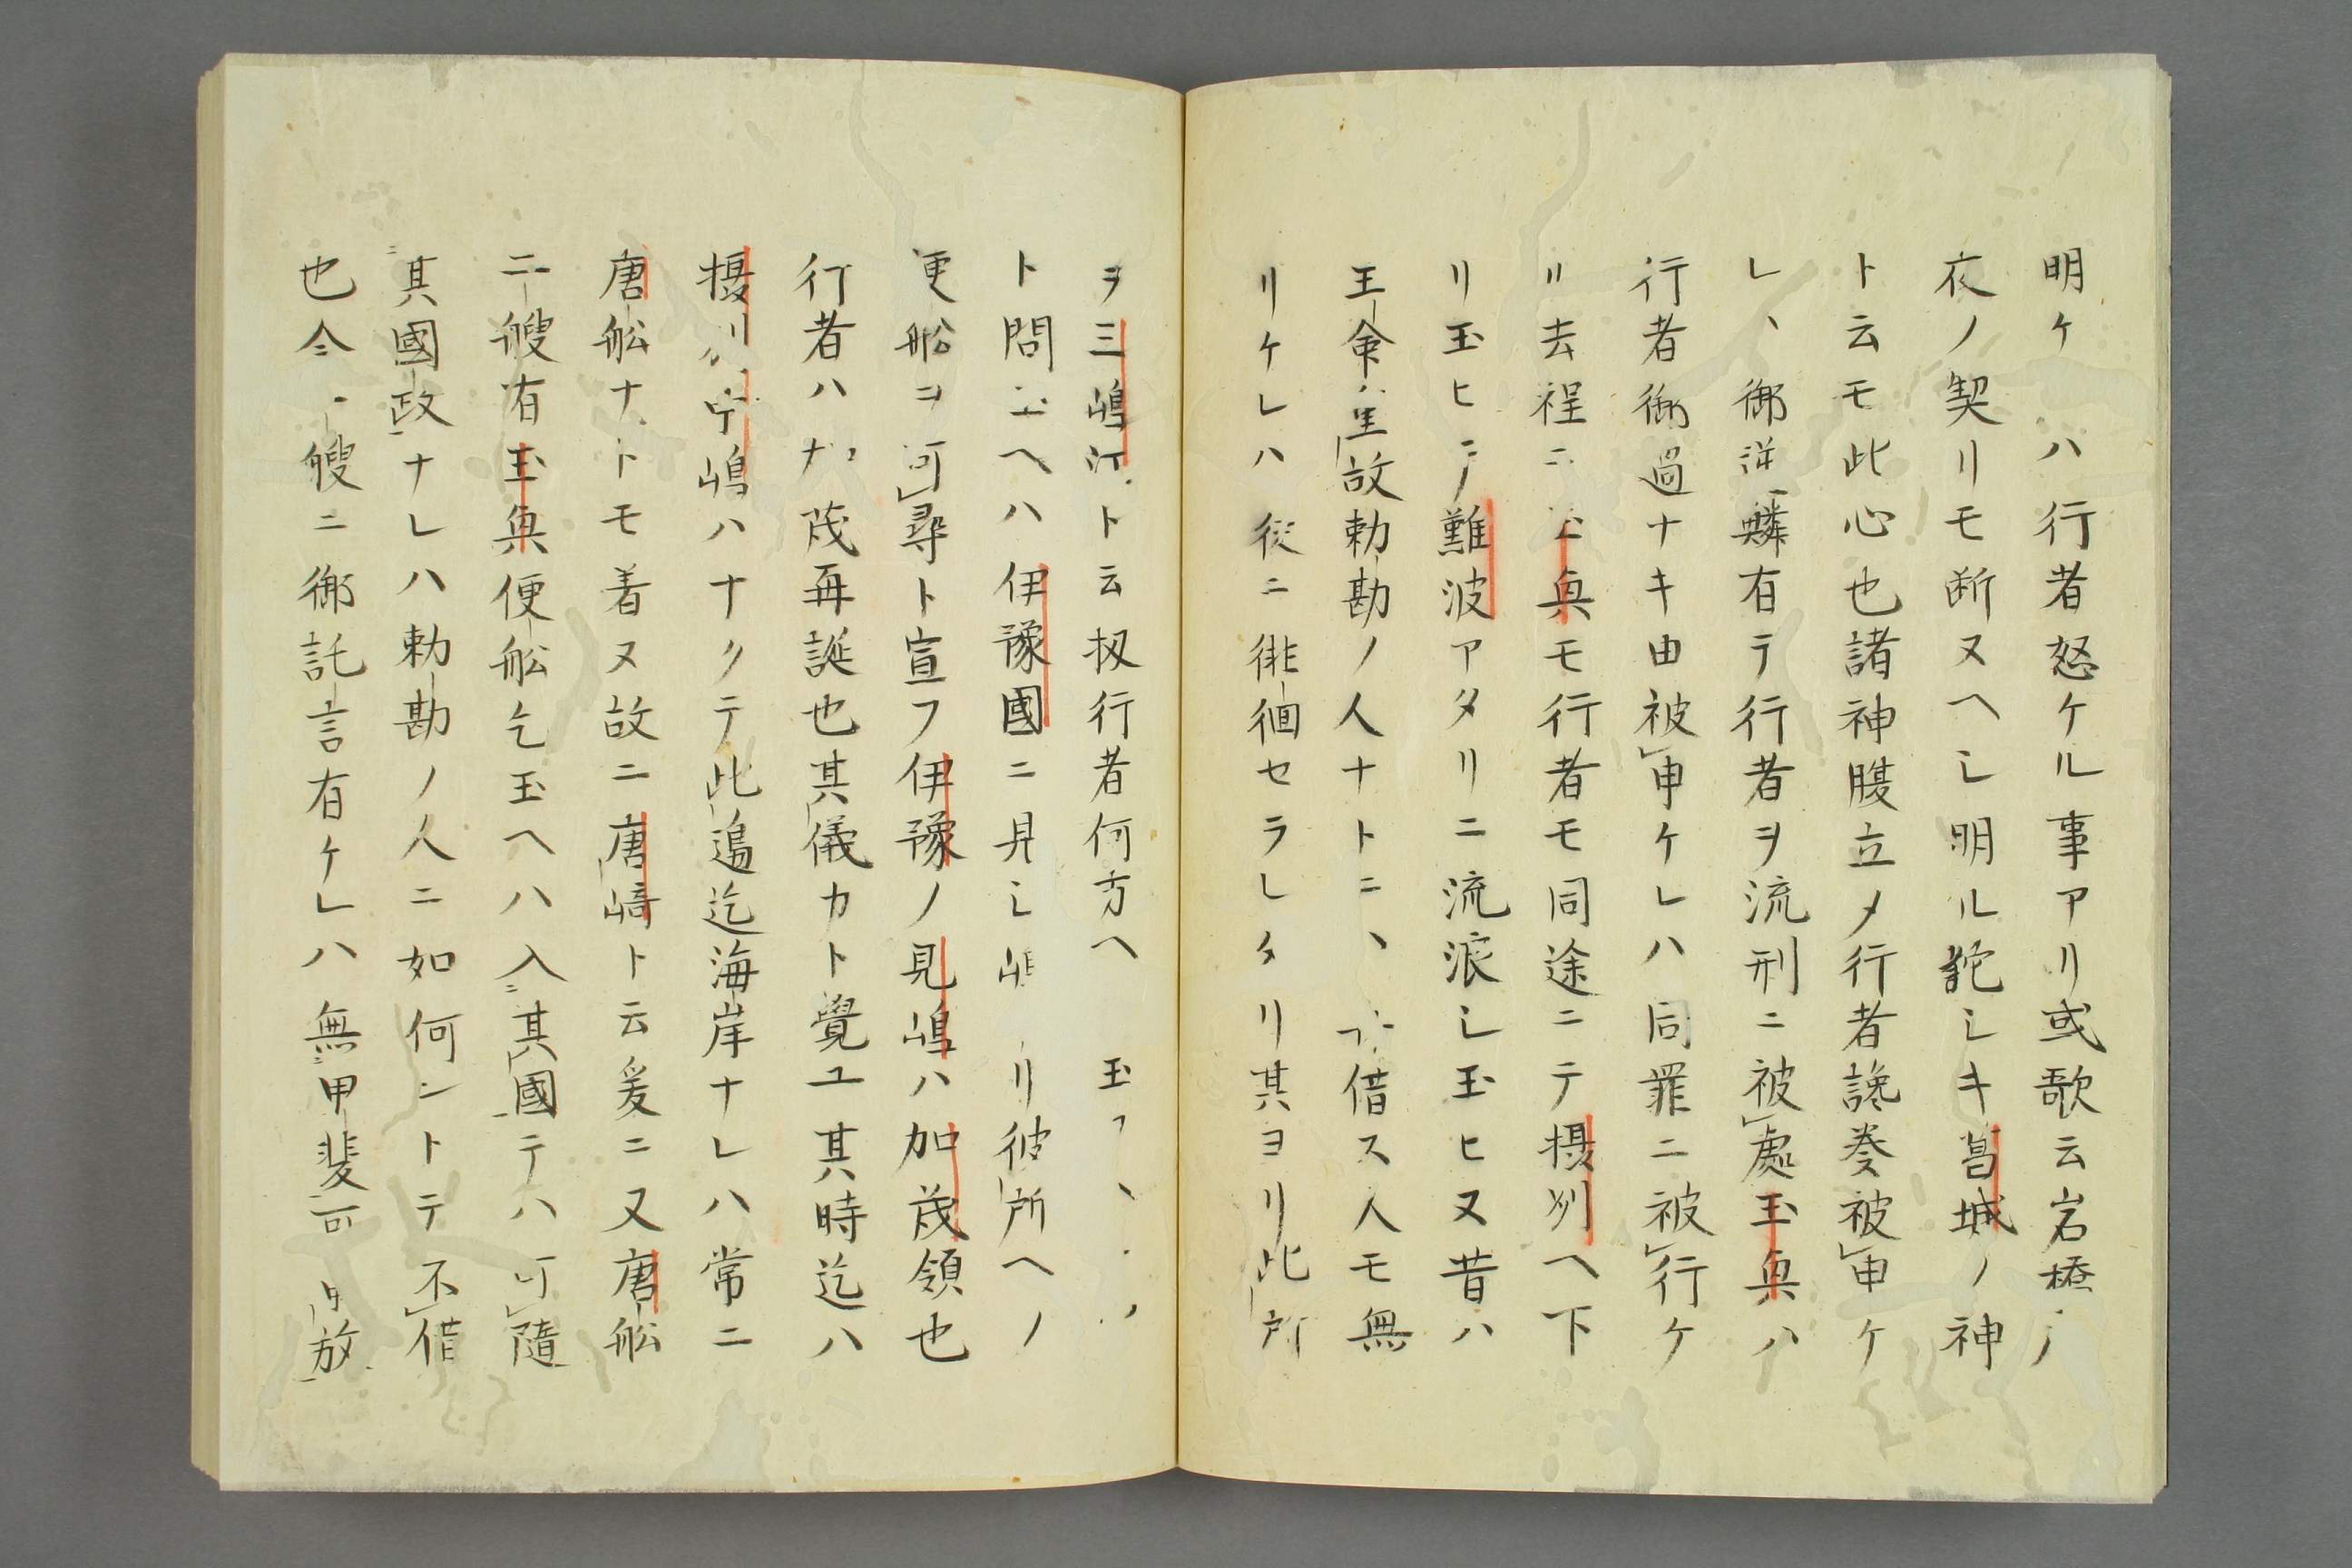 明ケ ハ行者怒ケル事アリ或歌云岩橋ノ
夜ノ契リモ断ヌヘシ明ル詫シキ葛城ノ神
ト云モ此心也諸神腹立メ行者讒奏被申ケ
レ、御逆鱗有テ行者ヲ流刑ニ被處玉奥ハ
行者御過ナキ由被申ケレハ同罪ニ被行ケ
リ去程ニ玉奥モ行者モ同途ニテ摂州ヘ下
リ玉ヒテ難波アタリニ流浪シ玉ヒヌ昔ハ
王命ハ重故勅勘ノ人ナトニ、 借ス人モ無
リケレハ徒ニ徘徊セラレタリ其ヨリ此所
ヲ三嶋江ト云扨行者何方ヘ 玉フ
ト問玉ヘハ伊豫國ニ見シ嶋 リ彼所ヘノ
便舩ヲ可尋ト宣フ伊豫ノ見嶋ハ加茂領也
行者ハ加茂再誕也其儀カト覺ユ其時迄ハ
摂州中嶋ハナクテ此邉迄海岸ナレハ常ニ
唐舩ナトモ着ヌ故ニ唐﨑ト云爰ニ又唐舩
二艘有玉奥便舩乞玉ヘハ入其國テハ可隨
其國政ナレハ勅勘ノ人ニ如何ントテ不借
也今一艘ニ御託言有ケレハ無甲斐可 放